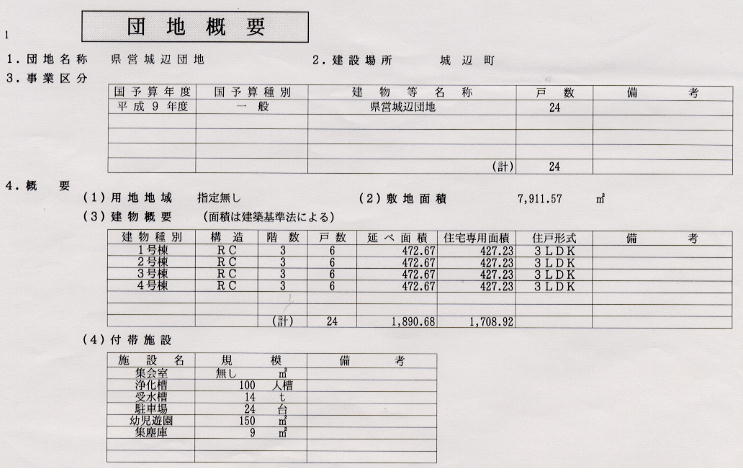 団地概要
1
1．団地名称　県営城辺団地　2．建設場所　城辺町
3．事業区分
国予算年度　国予算種別　建物等名称　戸数　備考
平成9年度　一般　県営城辺団地　24
(計)　24
4．概要
(1)用地地域　指定無し　(2)敷地面積　7,911.57　㎡
(3)建物概要　(面積は建築基準法による)
建物種別　構造　階数　戸数　延べ面積　住宅専用面積　住戸形式　備考
1号棟　RC　3　6　472.67　427.23　3LDK
2号棟　RC　3　6　472.67　427.23　3LDK
3号棟　RC　3　6　472.67　427.23　3LDK
4号棟　RC　3　6　472.67　427.23　3LDK
(計)　24　1,890.68　1,708.92
(4)付帯施設
施設名　規模　備考
集会室　無し　㎡
浄化槽　100　人槽
受水槽　14　t
駐車場　24　台
幼児遊園　150　㎡
集塵庫　9　㎡